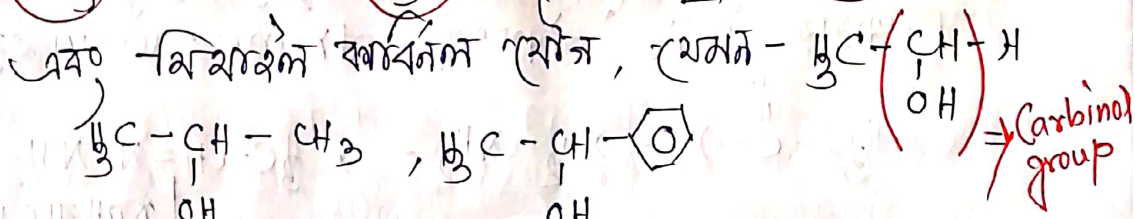 এবং মিথাইল কার্বিনল যৌগ, যেমন - H₃C-(CH)-H
OH
⇒ Carbinol group
H₃C - CH - CH₃ , H₃C - CH -
OH OH